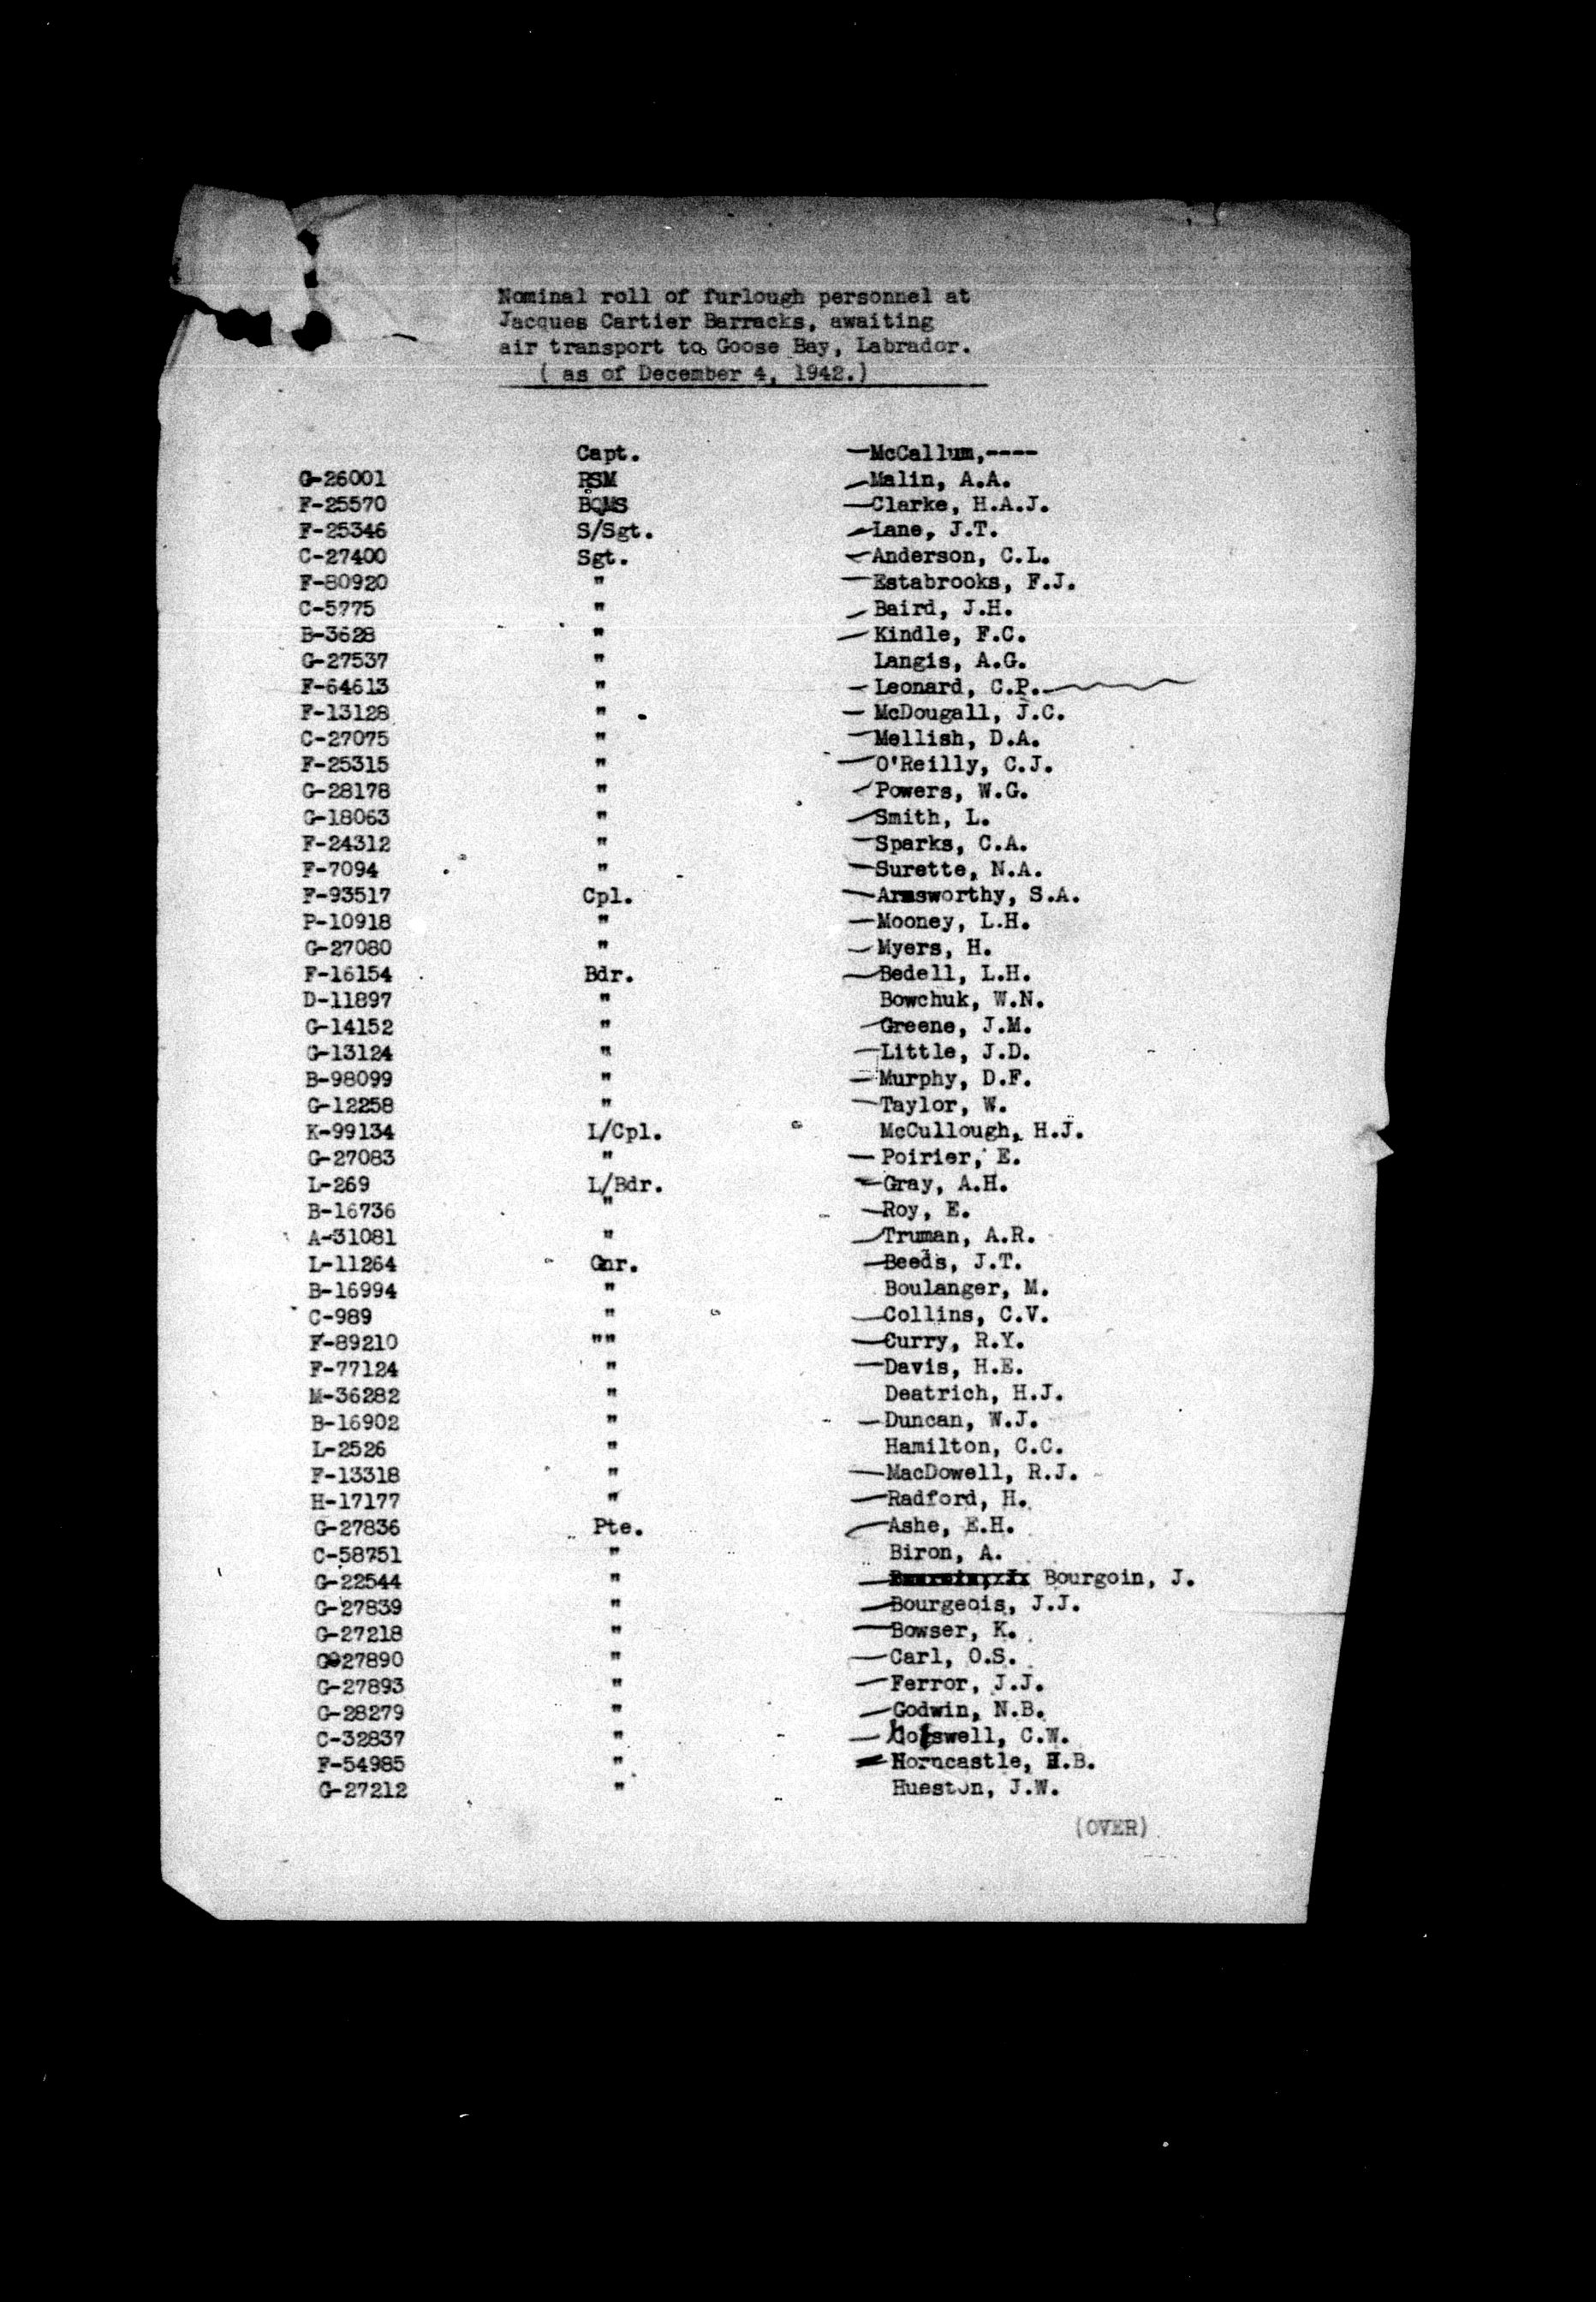 Nominal roll of furlough personnel at
Jacques Cartier Barracks, awaiting
air transport to Goose Bay, Labrador.
( as of December 4, 1942.)
Capt. McCallum,----
G-26001 RSM Malin, A.A.
F-25570 BQMS Clarke, H.A.J.
F-25346 S/Sgt. Lane, J.T.
C-27400 Sgt. Anderson, C.L.
F-80920 " Estabrooks, F.J.
C-5775 " Baird, J.H.
B-3628 " Kindle, F.C.
G-27537 " Langis, A.G.
F-64613 " Leonard, C.P.
F-13128 " McDougall, J.C.
C-27075 " Mellish, D.A.
F-25315 " O'Reilly, C.J.
G-28178 " Powers, W.G.
G-18063 " Smith, L.
F-24312 " Sparks, C.A.
F-7094 " Surette, N.A.
F-93517 Cpl. Armsworthy, S.A.
P-10918 " Mooney, L.H.
G-27080 " Myers, H.
F-16154 Bdr. Bedell, L.H.
D-11897 " Bowchuk, W.N.
G-14152 " Greene, J.M.
G-13124 " Little, J.D.
B-98099 " Murphy, D.F.
G-12258 " Taylor, W.
K-99134 L/Cpl. McCullough, H.J.
G-27083 " Poirier, E.
L-269 L/Bdr. Gray, A.H.
B-16736 " Roy, E.
A-31081 " Truman, A.R.
L-11264 Gnr. Beeds, J.T.
B-16994 " Boulanger, M.
C-989 " Collins, C.V.
F-89210 "" Curry, R.Y.
F-77124 " Davis, H.E.
M-36282 " Deatrich, H.J.
B-16902 " Duncan, W.J.
L-2526 " Hamilton, C.C.
F-13318 " MacDowell, R.J.
H-17177 " Radford, H.
G-27836 Pte. Ashe, E.H.
C-58751 " Biron, A.
G-22544 " Bourgoin, J.
G-27839 " Bourgeois, J.J.
G-27218 " Bowser, K.
G-27890 " Carl, O.S.
G-27893 " Ferror, J.J.
G-28279 " Godwin, N.B.
C-32837 " C.W.
F-54985 " Horncastle, H.B.
G-27212 " Hueston, J.W.
(OVER)